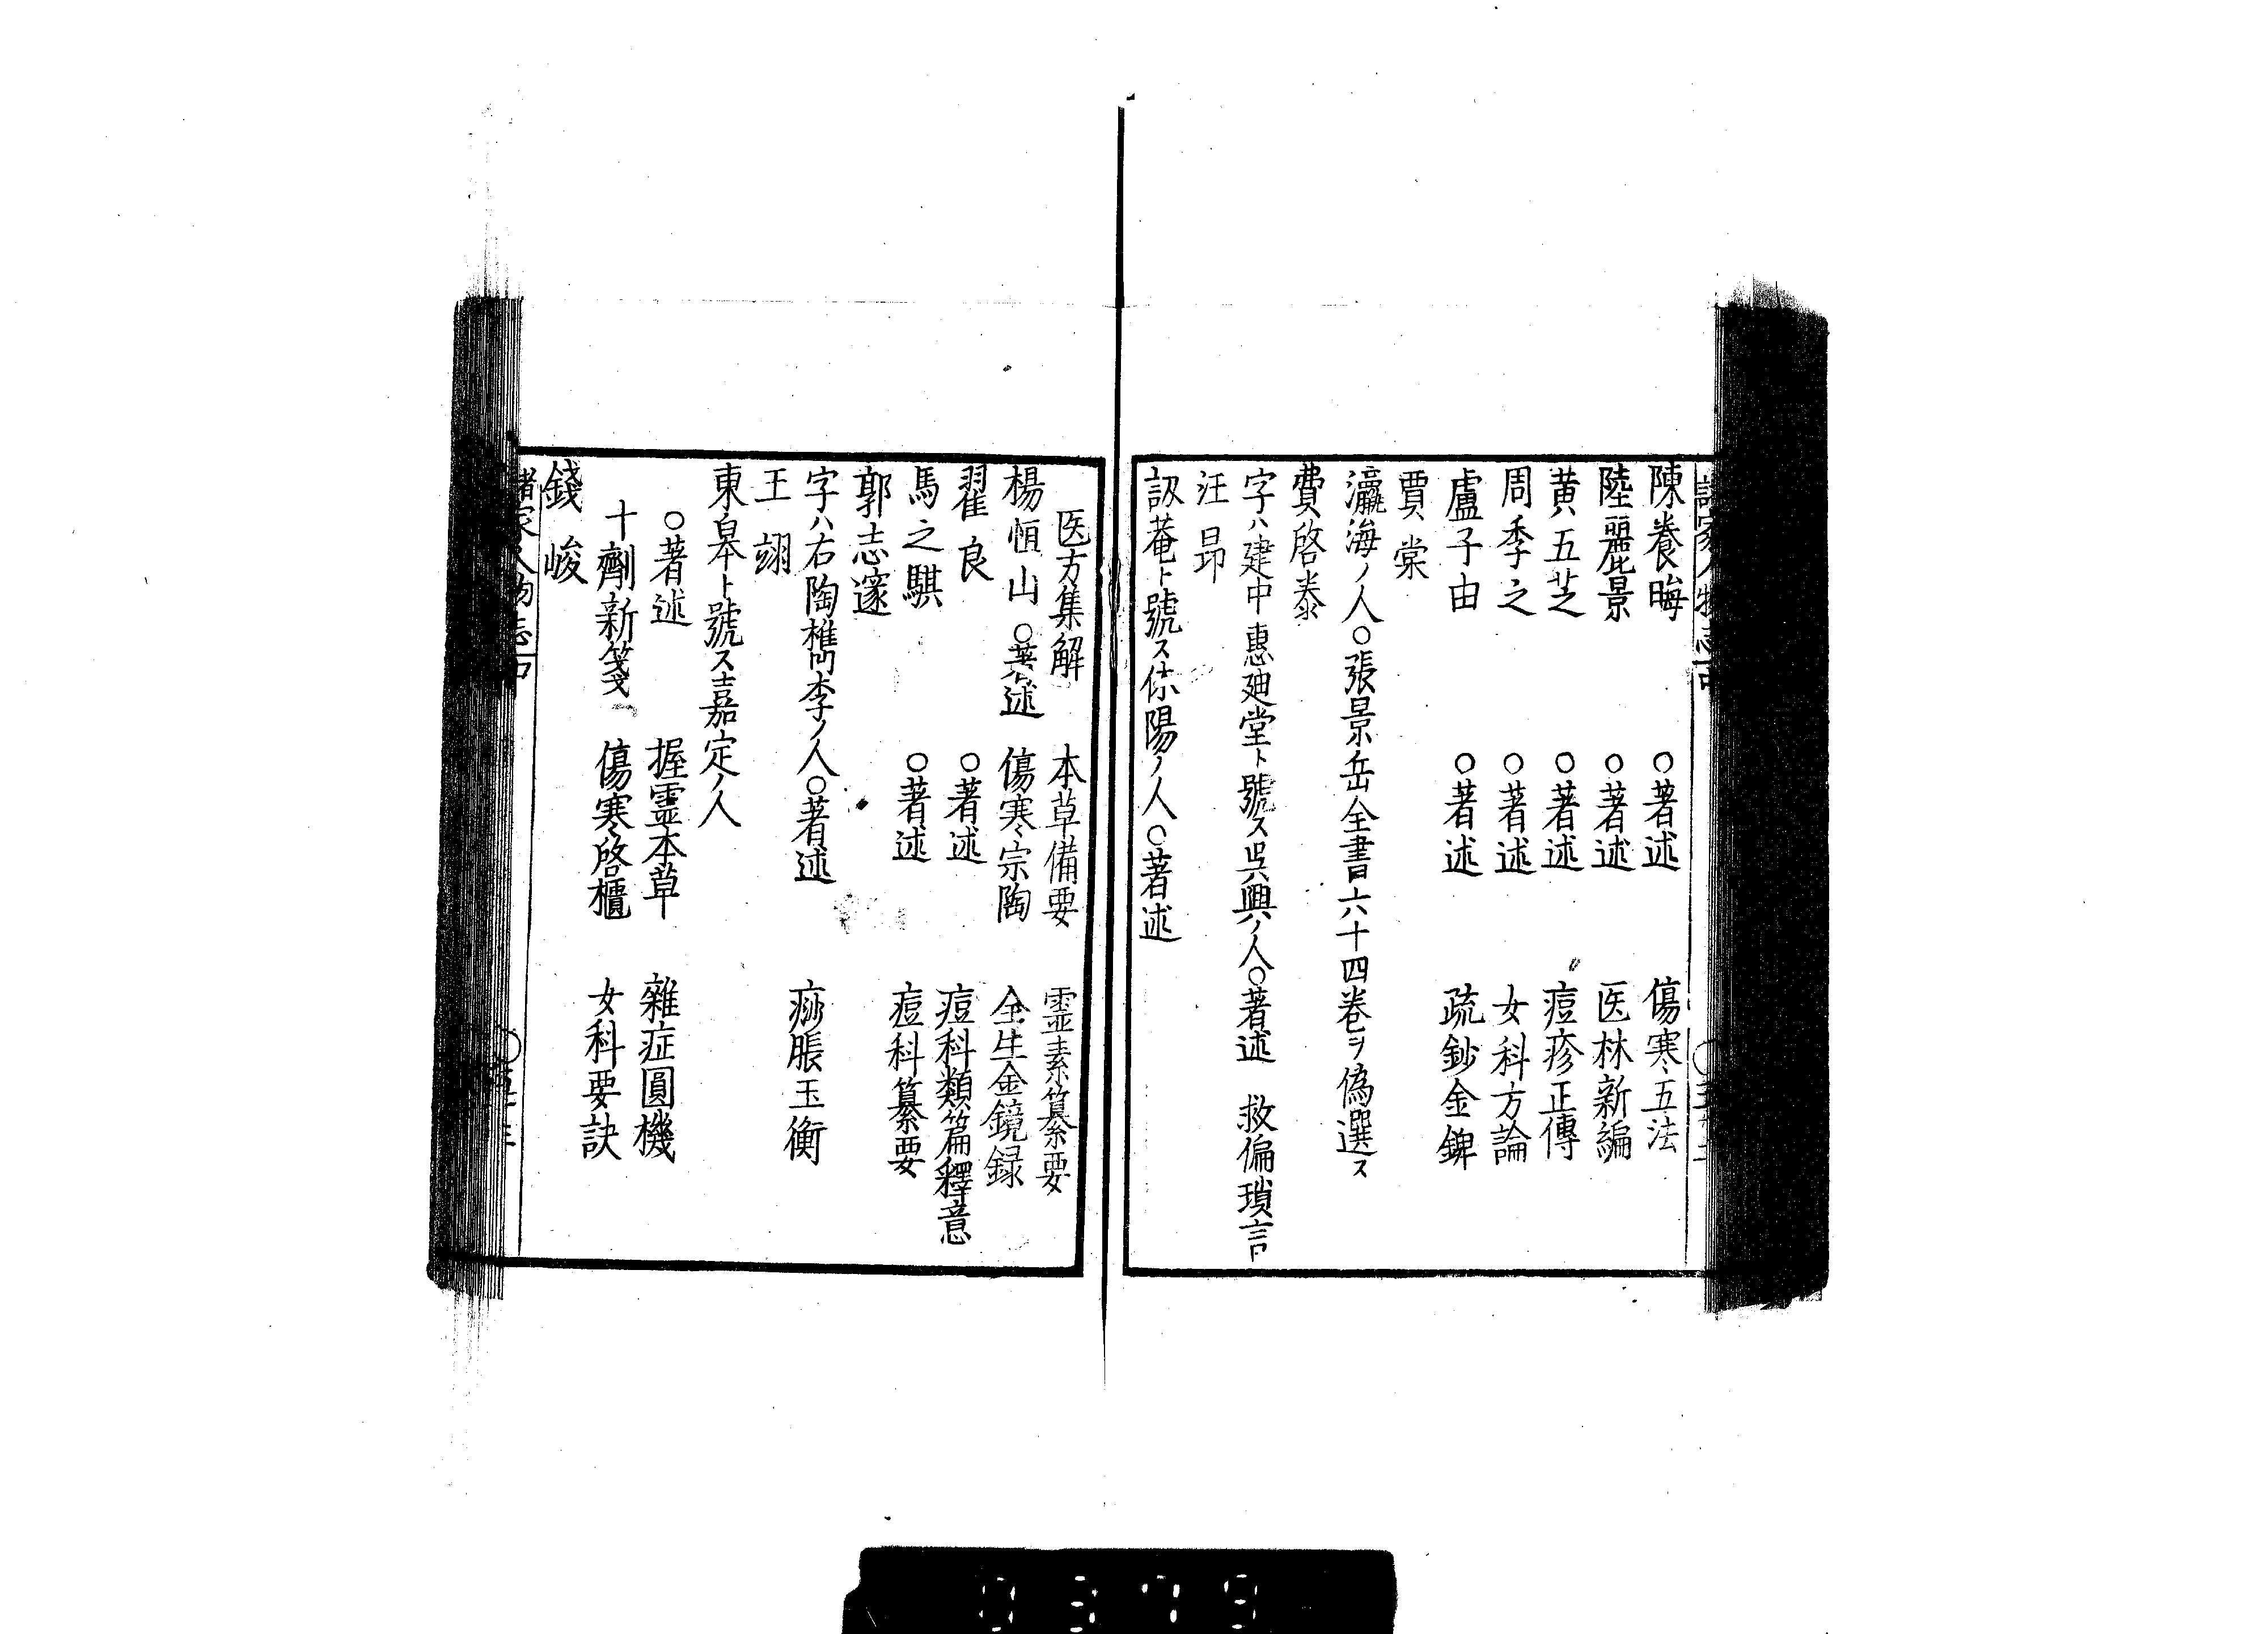 陳養晦 ○著述 傷寒五法
陸麗景 ○著述 医林新編
黄五芝 ○著述 痘疹正傳
周季之 ○著述 女科方論
盧子由 ○著述 疏鈔金錍
賈棠
瀛海ノ人○張景岳全書六十四巻ヲ偽選ス
費啓泰
字ハ建中惠廸堂ト號ス呉興ノ人○著述 救偏瑣言
汪昂
訒菴ト號ス休陽ノ人○著述
医方集解 本草備要 霊素纂要
楊恒山 ○著述 傷寒宗陶 全生金鏡録
翟良 ○著述 痘科類篇釋意
馬之騏 ○著述 痘科纂要
郭志邃
字ハ右陶檇李ノ人○著述 痧脹玉衡
王翃
東皐ト號ス嘉定ノ人
○著述 握霊本草 雜症圓機
十劑新箋 傷寒啓櫃 女科要訣
錢峻
諸家人物志
0379